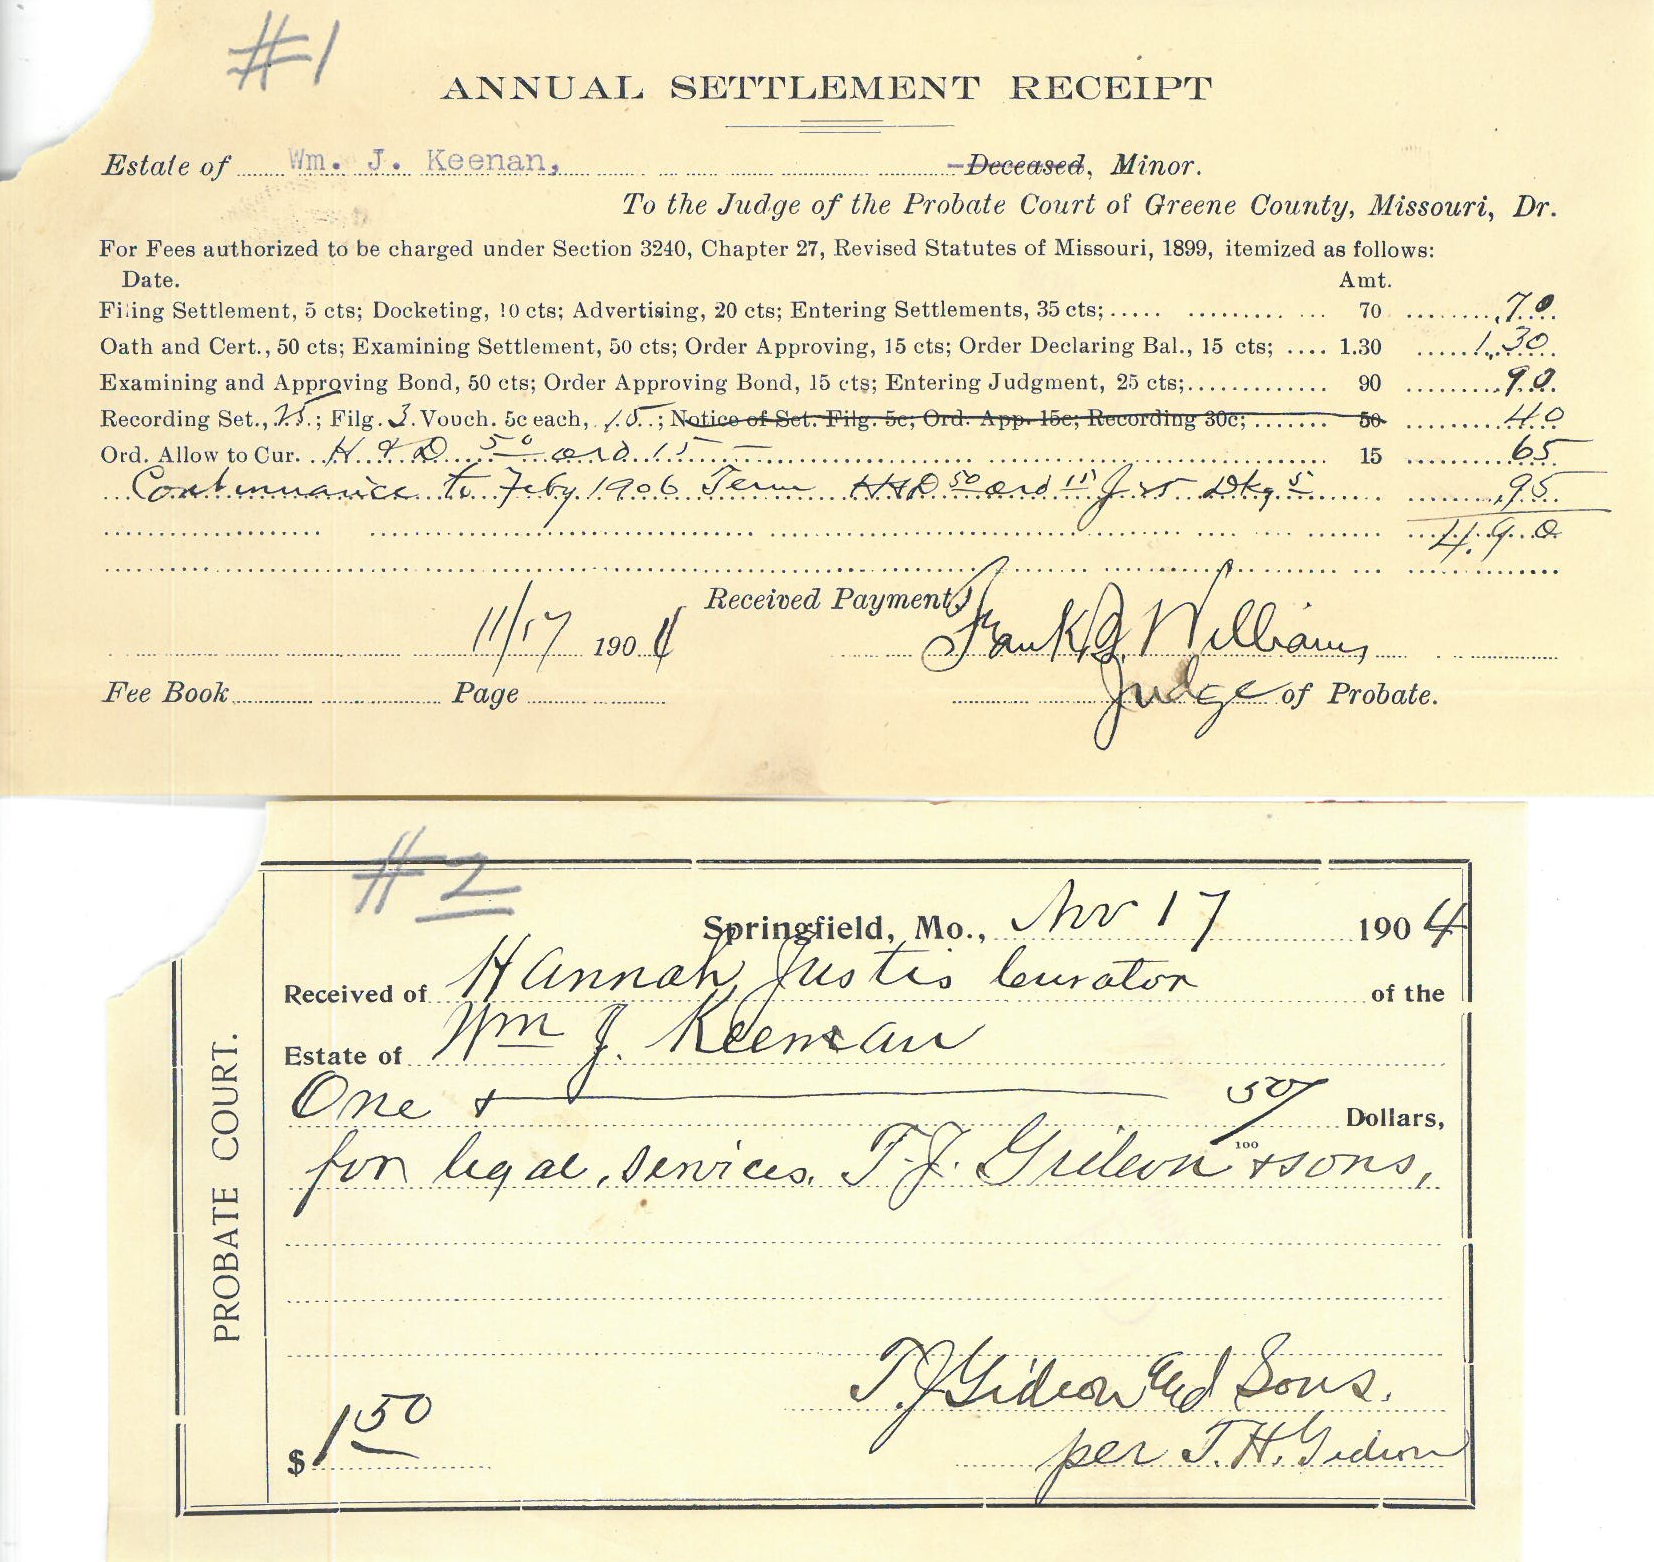 #1
ANNUAL SETTLEMENT RECEIPT
Estate of Wm. J. Keenan, Deceased, Minor.
To the Judge of the Probate Court of Greene County, Missouri, Dr.
For Fees authorized to be charged under Section 3240, Chapter 27, Revised Statutes of Missouri, 1899, itemized as follows:
Date. Amt.
Filing Settlement, 5 cts; Docketing, 10 cts; Advertising, 20 cts; Entering Settlements, 35 cts; 70 .70
Oath and Cert., 50 cts; Examining Settlement, 50 cts; Order Approving, 15 cts; Order Declaring Bal., 15 cts; 1.30 1.30
Examining and Approving Bond, 50 cts; Order Approving Bond, 15 cts; Entering Judgment, 25 cts; 90 .90
Recording Set., 25; Filg. 3 Vouch. 5c each, .15; Notice of Set. Filg. 5c; Ord. App. 15c; Recording 30c; 50 40
Ord. Allow to Cur. H & D 50 ord 15 15 65
Continuance to Feby 1906 Term H&D 50 ord 15 J 25 Dkg 5 .95
4.90
Received Payment,
11/17 1904 Frank J. Williams
Fee Book Page Judge of Probate.
#2
Springfield, Mo., Nov 17 1904
Received of Hannah Justis Curator of the
Estate of Wm J. Keenan
One & 50/100 Dollars,
for legal services. T.J. Gideon & sons,
PROBATE COURT.
T.J. Gideon and Sons.
$ 1 50
per T.H. Gideon